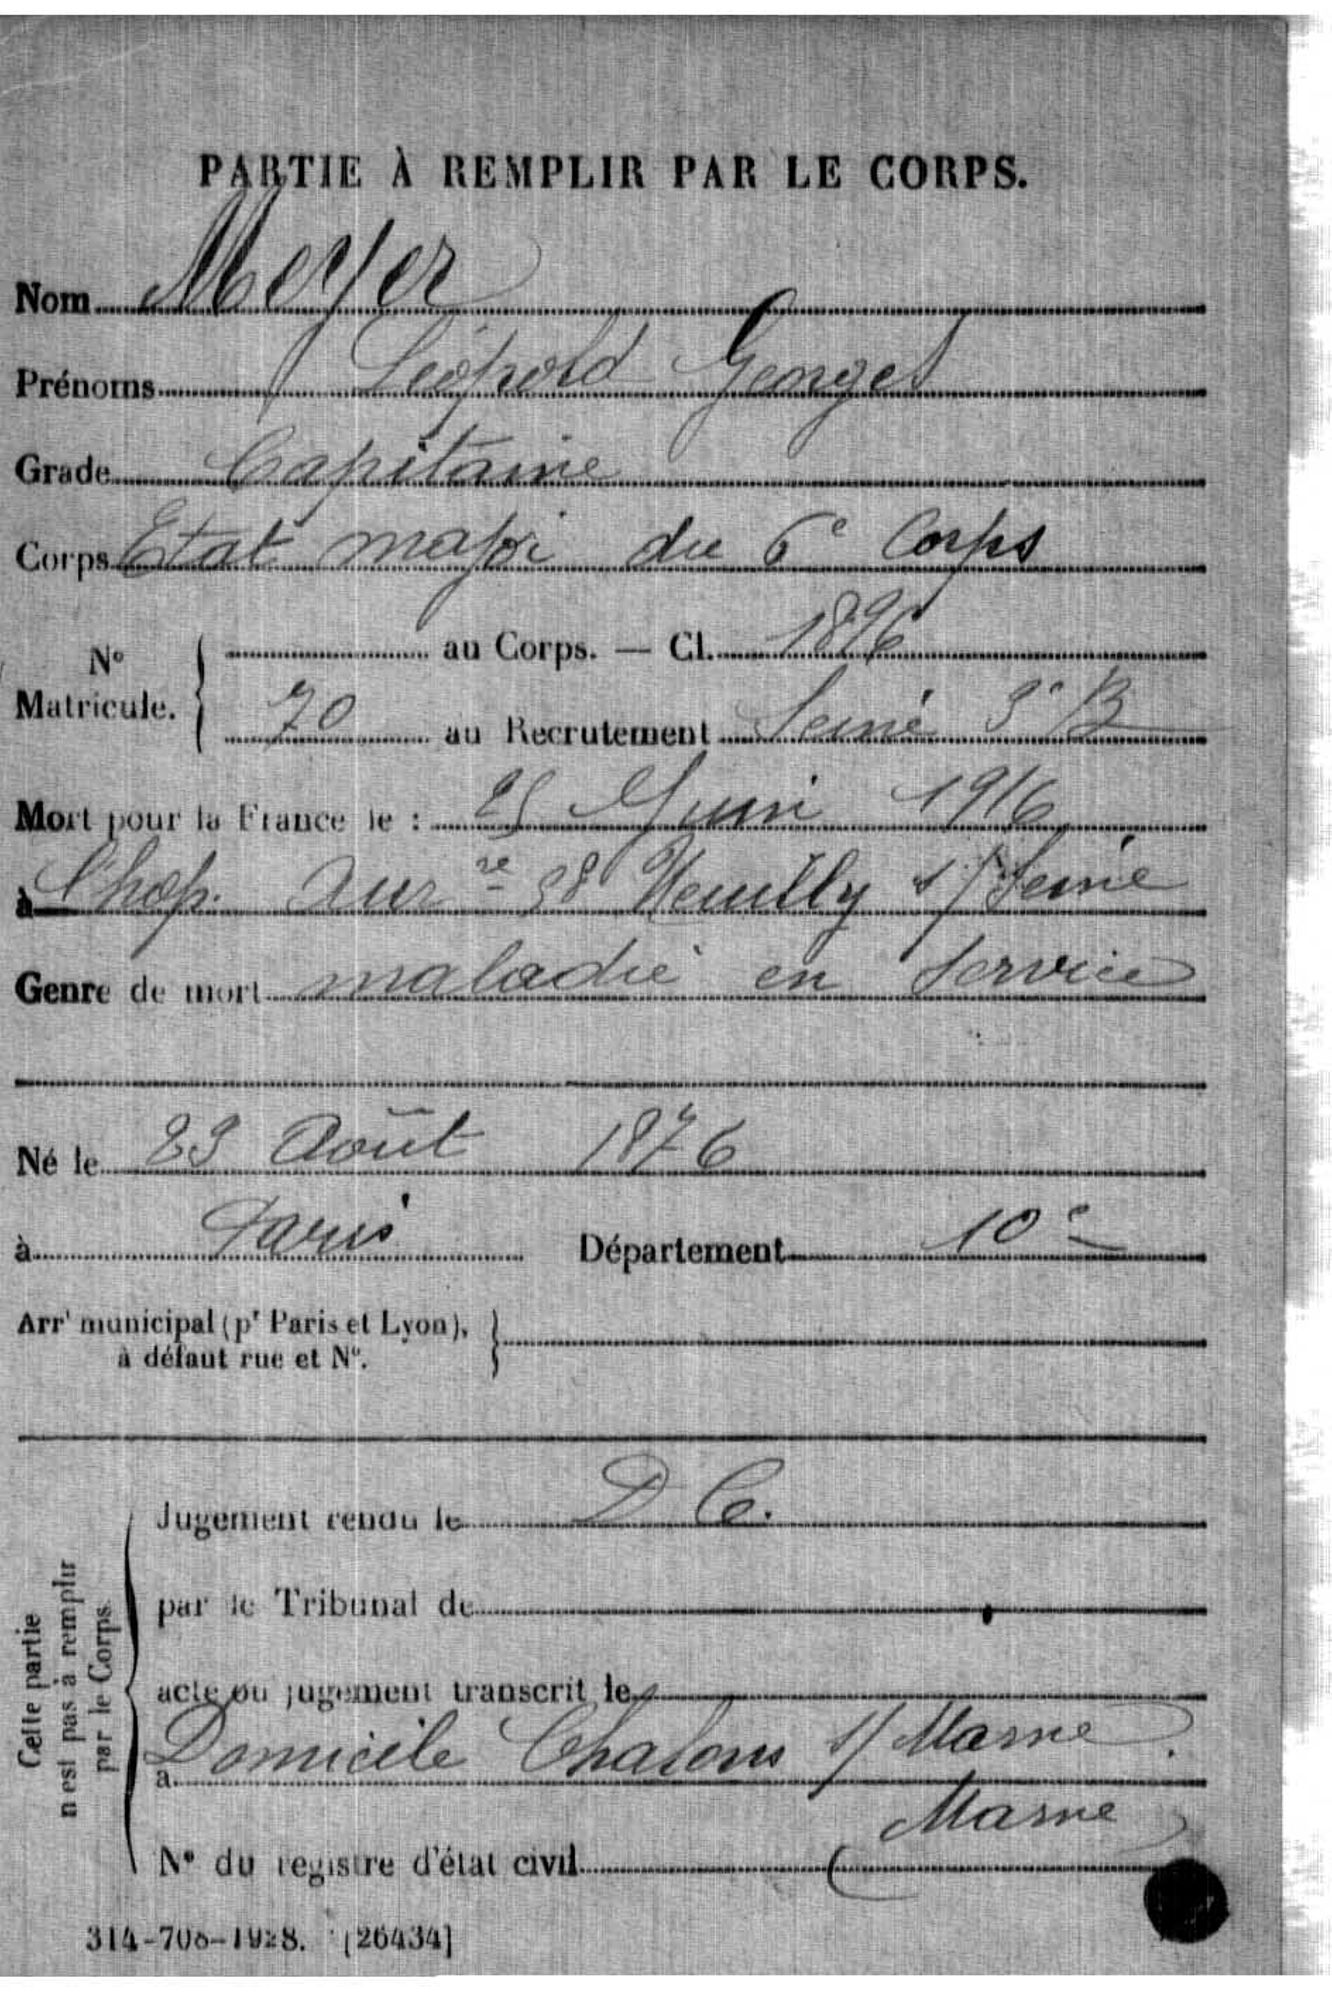 PARTIE À REMPLIR PAR LE CORPS.
Nom Meyer
Prénoms Léopold Georges
Grade Capitaine
Corps Etat major du 6e Corps
No Matricule. { au Corps. — Cl. 1896
70 au Recrutement Seine 3e B
Mort pour la France le : 25 Juin 1916
à l'hop. Aux re 58 Neuilly s/ Seine
Genre de mort maladie en service
Né le 23 Août 1876
à Paris Département 10e
Arrt municipal (pr Paris et Lyon),
à défaut rue et No.
Cette partie
n'est pas à remplir
par le Corps.
Jugement rendu le D C.
par le Tribunal de
acte ou jugement transcrit le
à Domicile Chalons s/ Marne
Marne
No du registre d'état civil
314-708-1928. [26434]